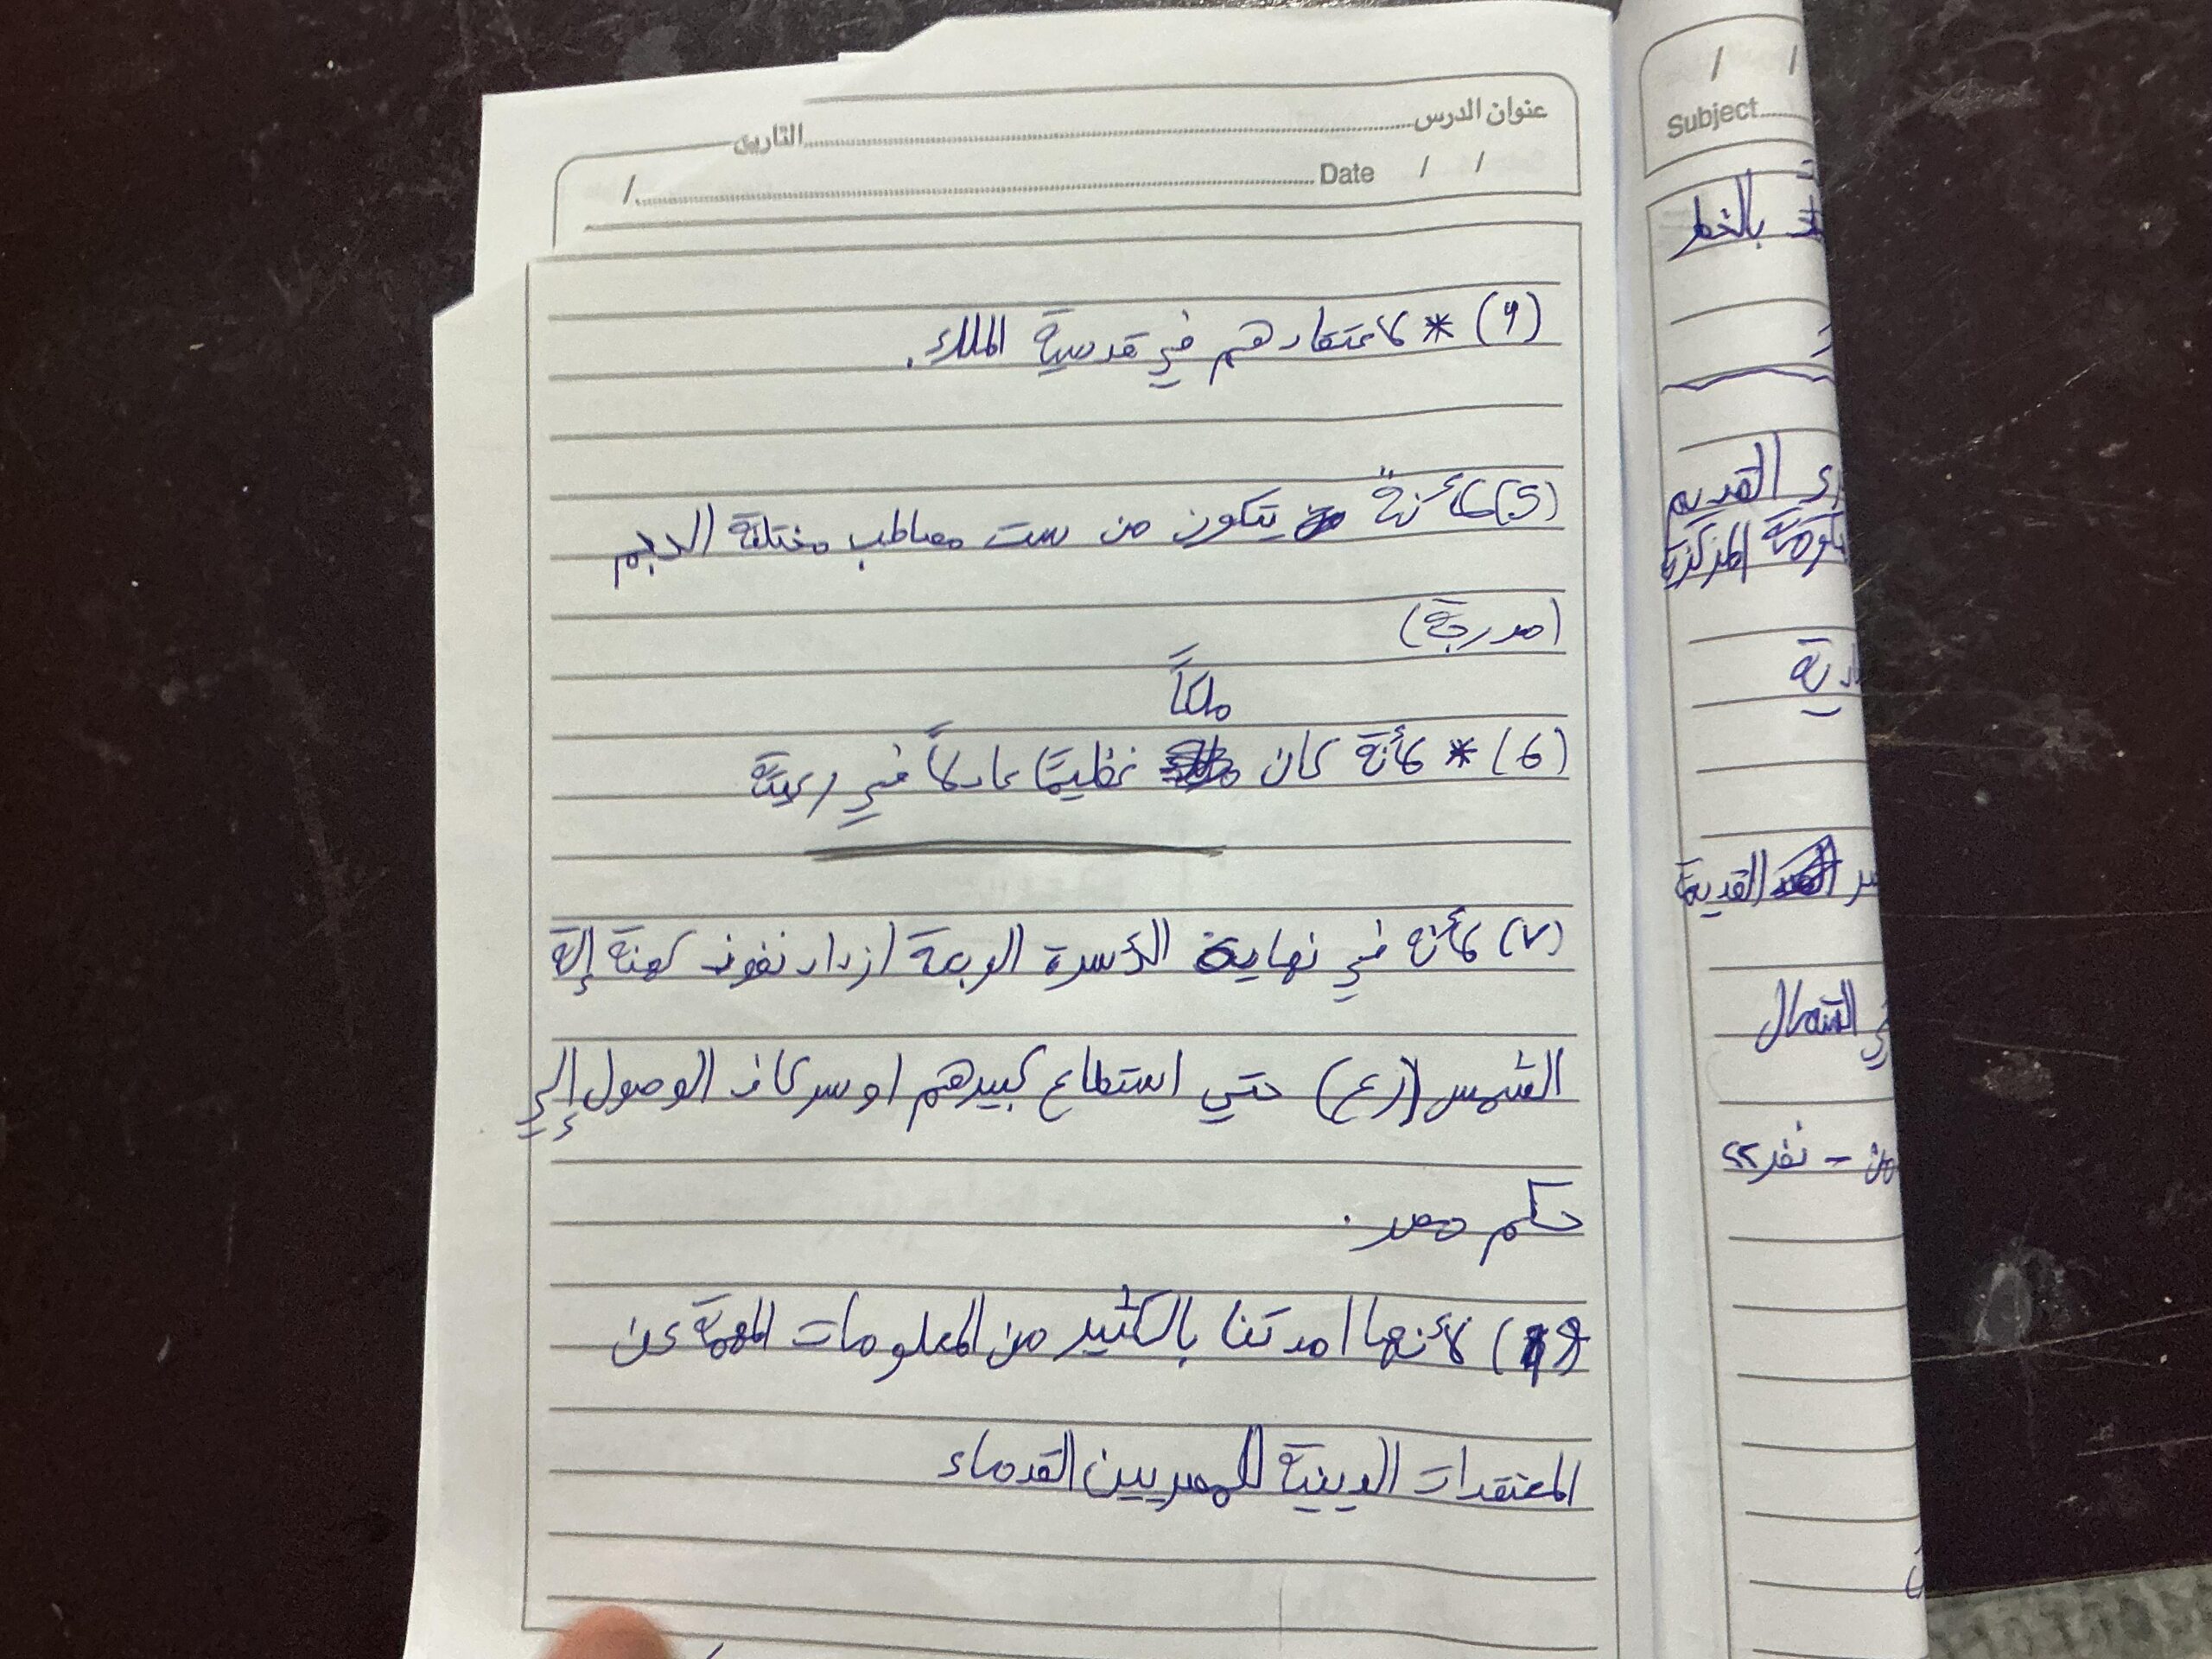 عنوان الدرس التاريخ
Date / / /
(٤) * لاعتقادهم في قدسية الملك.
(5) لأنة يتكون من ست مصاطب مختلفة الحجم
(مدرجة)
ملكاً
(6) * لأنة كان عظيمًا عادلاً في رعيتة
(٧) لأنه في نهاية الأسرة الربعة ازداد نفوذ كهنة إلة
الشمس (رع) حتي استطاع كبيرهم اوسركاف الوصول إلي
حكم مصر.
8) لأنها امدتنا بالكثير من المعلومات المهمة عن
المعتقدات الدينية للمصريين القدماء
/ /
Subject
بالخط
القديم
المركزية
القديمة
الشمال
نفر